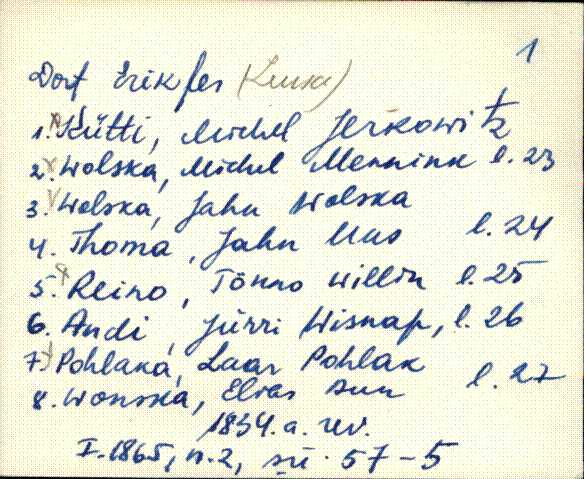 1
Dorf Erikfer (Luuka)
1. Kütti, Michel Jerkowitz
2. Wolska, Michel Mennink l. 23
3. Wolska, Jahn Wolska
4. Thoma, Jahn Uus l. 24
5. Reino, Tönno Willin l. 25
6. Andi, Jürri Wisnap, l. 26
7. Pohlaka, Laar Pohlak
8. Wonska, Elias l. 27
1834. a. rev.
I-1865, n. 2, sü. 57-5